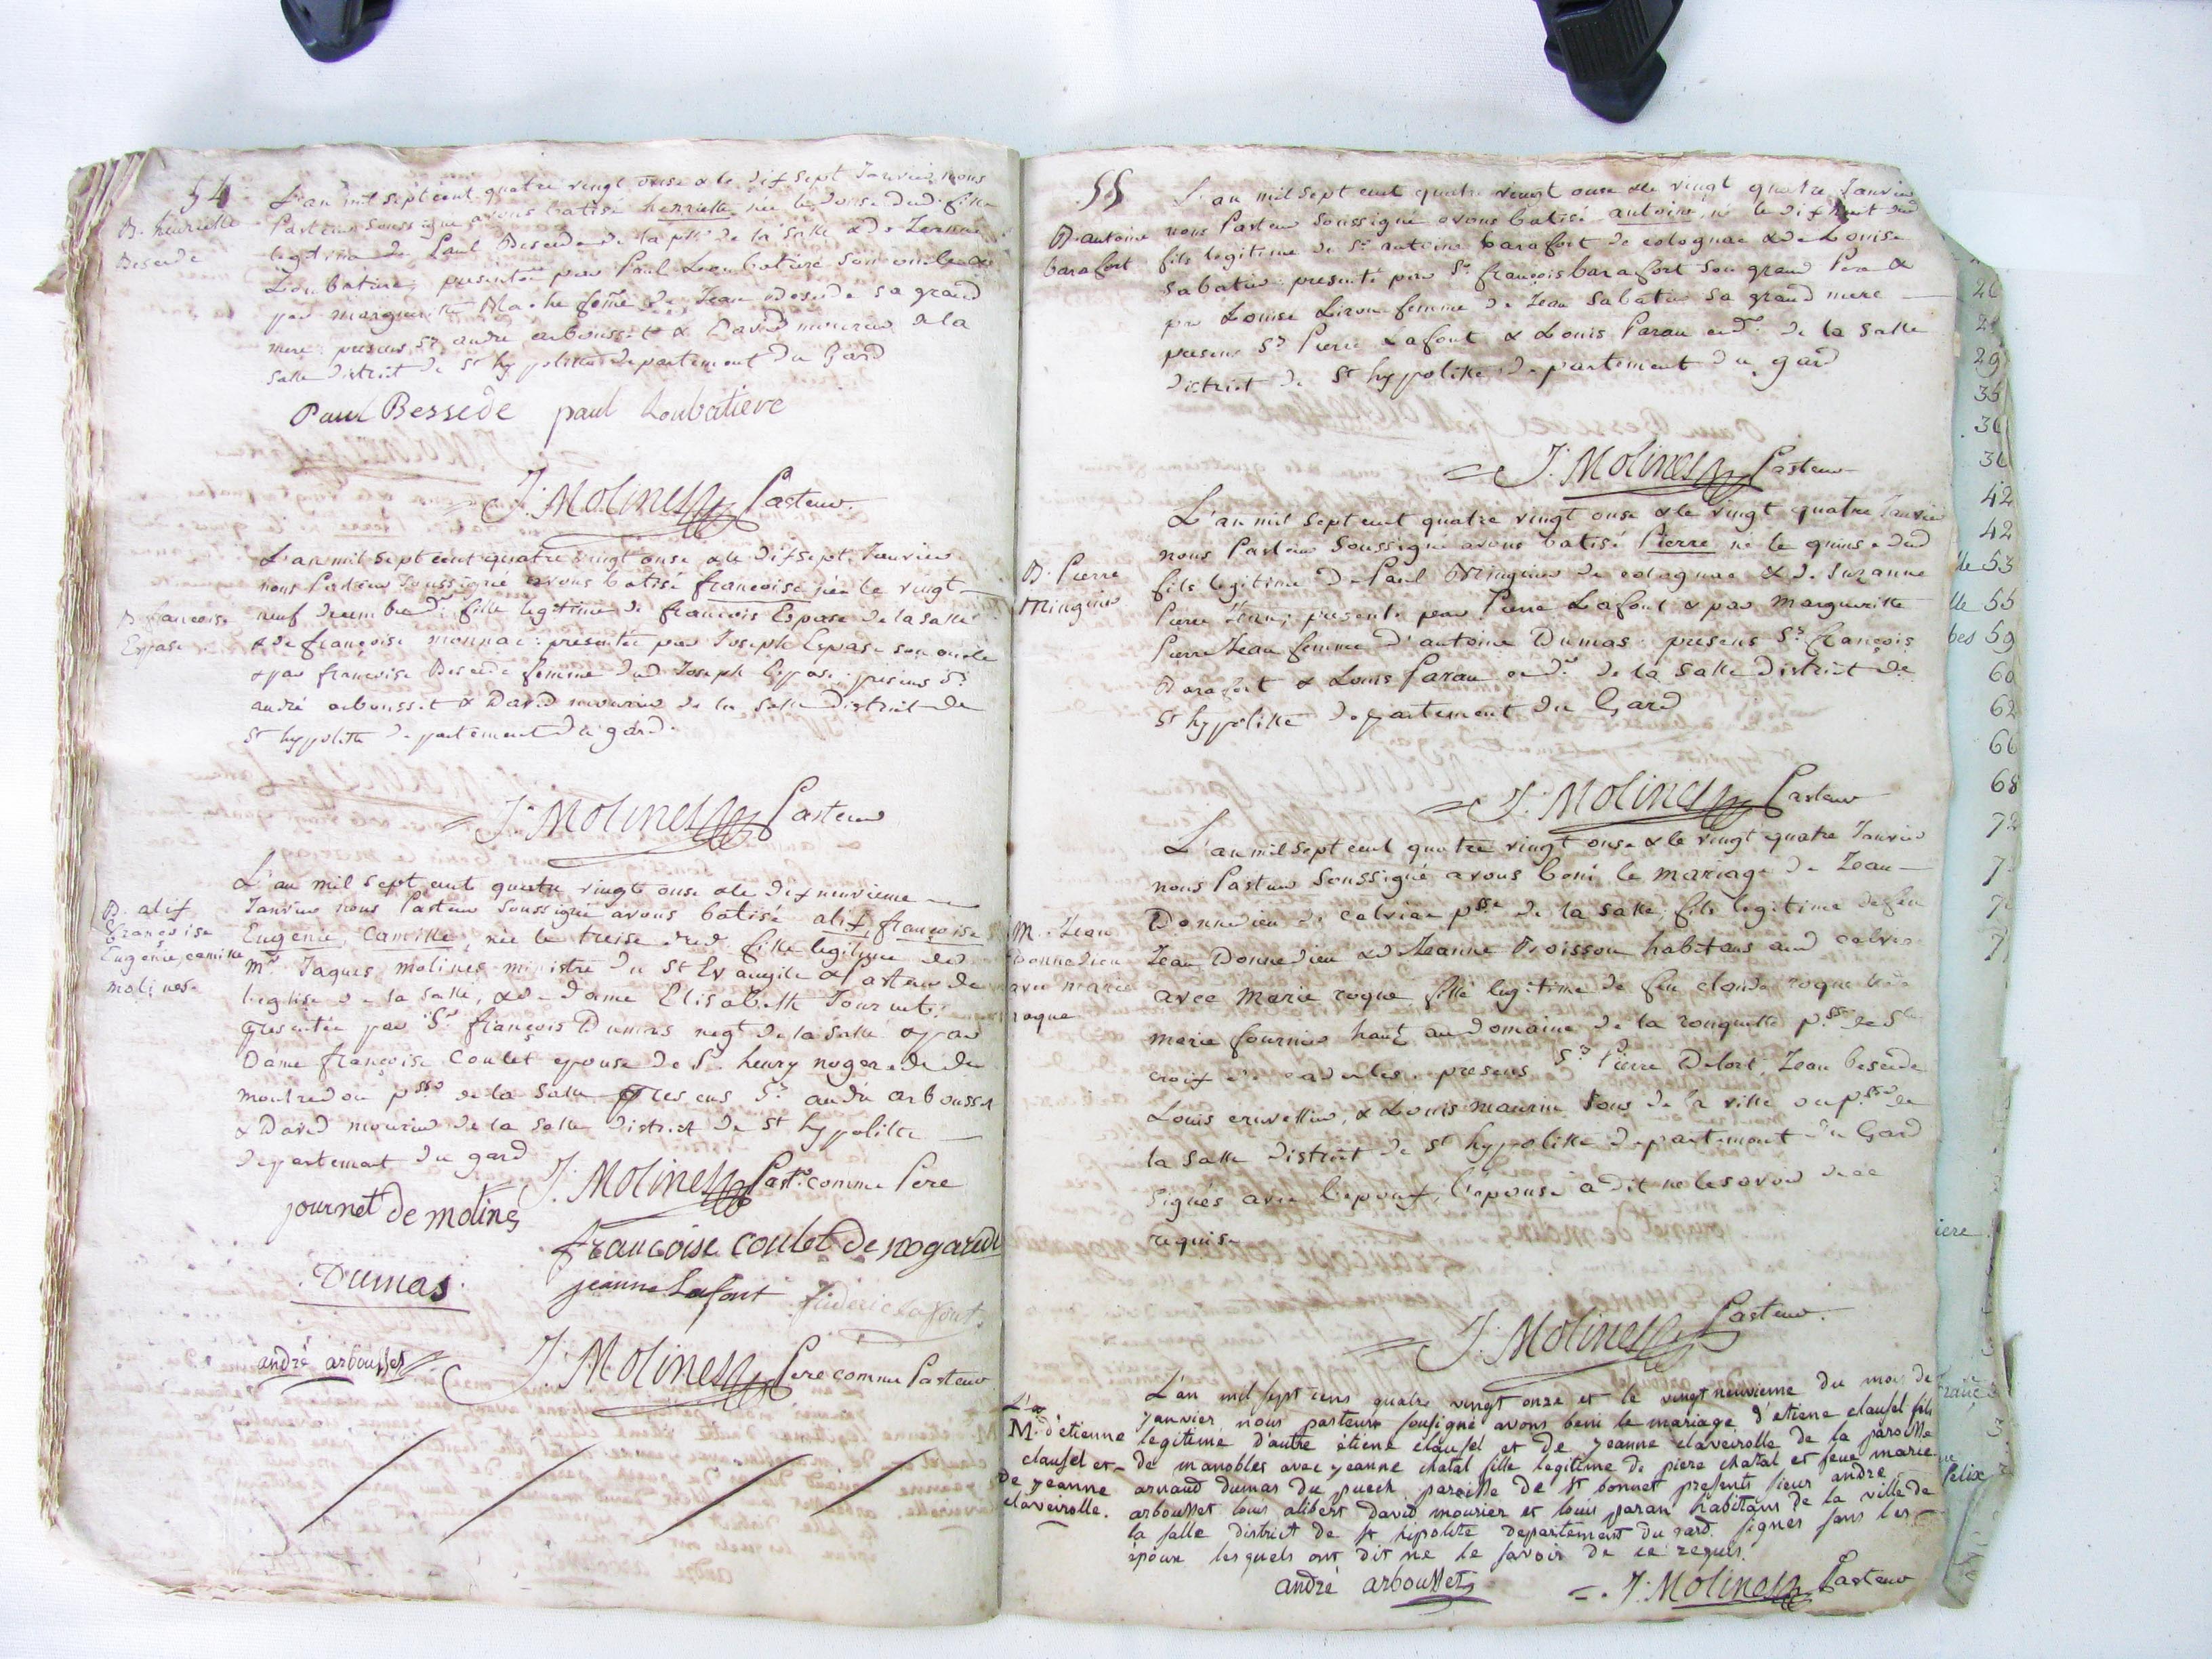 54
L'an mil sept cent quatre vingt onse & le dix sept Janvier nous
B. henriette
Beseide
Pasteur soussigné avons batisé henriette née le donse dud. fille
legitime de Paul Beseide de la psse de la Salle & de Jeanne
Loubatiere, presentée par Paul Loubatiere son oncle &
par marguerite femme de Jean Beseide sa grand
mere: presens Srs andré arbousset & David mourier de la
Salle district de St hyppolitte departement du Gard
Paul Bessede paul Loubatiere
J. Molines Pasteur.
L'an mil sept cent quatre vingt onse & le dix sept Janvier
nous Pasteur Soussigné avons batisé francoise née le vingt
B. francoise
Espase
neuf decembre dr. fille legitime de francois Espase de la salle
& de françoise monnac: presentée par Joseph Espase son oncle
& par francoise Beseide femme dud Joseph Espase: presens Srs
andré arbousset & David mourier de la Salle District de
St hyppolitte departement du gard.
J. Molines Pasteur
L'an mil sept cent quatre vingt onse & le dix neuvieme
B. alix
françoise
Eugenie, camille
molines.
Janvier nous Pasteur Soussigné avons batisé alix, françoise
Eugenie, Camille, née le treise dud. fille legitime de
mr Jaques molines ministre du St Evangile & Pasteur de
l'eglise de la Salle, & de dame Elisabeth Journet:
presentée par Sr françois Dumas negt de la Salle & par
Dame françoise Coulet epouse de Sr henry nogarede du
montredon psse de la Salle presens Srs andré arbousset
& David mourier de la Salle District de St hyppolitte
departement du gard
J. Molines Past. comme Pere
journet de molines
francoise coulet de nogarede
Dumas.
jeanne Lafont frideric lafont.
andré arbousset
J. Molines Pere comme Pasteur
55
L'an mil sept cent quatre vingt onse & le vingt quatre Janvier
B. antoine
barafort
nous Pasteur Soussigné avons batisé antoine, né le dix huit dud
fils legitime de Sr antoine barafort de colognac & de Louise
Sabatier: presenté par Sr françois barafort son grand Pere &
par Louise Liron femme de Jean Sabatier sa grand mere
presens Srs Pierre Lafont & Louis Paran cord. de la Salle
district de St hyppolitte departement du gard
J. Molines Pasteur
L'an mil sept cent quatre vingt onse & le vingt quatre Janvier
B. Pierre
Mingeaud
nous Pasteur Soussigné avons batisé Pierre né le quinse dud
fils legitime de Paul de colognac & de Suzanne
Pierre Jean, presenté par Pierre Lafont & par Marguerite
Pierre Jean femme d'antoine Dumas: presens Srs françois
Barafort & Louis Paran cord. de la Salle District de
St hyppolitte departement du Gard
J. Molines Pasteur
L'an mil sept cent quatre vingt onse & le vingt quatre Janvier
nous Pasteur Soussigné avons beni le mariage de Jean
M. Jean
Donnedieu
avec marie
roque
Donnedieu de calviac psse de la Salle, fils legitime de feu
Jean Donnedieu & Jeanne Poisson habitans aud calviac
avec Marie roque fille legitime de feu claude roque & de
marie fournier habt au domaine de la rouquette psse de Ste
croix de caderles. presens Srs Pierre Delort, Jean beseide
Louis cruvellier, & Louis maurin tous de la ville ou psse de
la Salle district de St hyppolitte departement du Gard
Signés avec l'epoux, l'epouse a dit ne le savoir de ce
requise
J. Molines Pasteur.
L'an mil sept cens quatre vingt onze et le vingt neuvieme du mois de
L'a
M. d'étienne
clausel et
de yeanne
claveirolle.
yanvier nous pasteur sousigné avons beni le mariage d'etiene clausel fils
legitime d'autre étiene clausel et de yeanne claveirolle de la paroisse
de manobles avec yeanne chatal fille legitime de piere chatal et feue marie
arnaud dumas du puech paroisse de st bonnet presents sieur andre
arbousset louis alibert david mourier et louis paran habitans de la ville de
la salle district de st hipolite departement du gard signes sans les
époux lesquels ont dit ne le savoir de ce requis.
andré arbousset J. Molines Pasteur
29
42
42
53
55
59
60
62
66
68
72
iere
felix